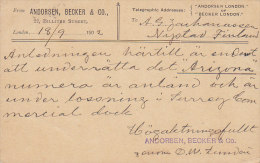 From ANDORSEN, BECKER & Co.,
Telegraphic Addresses: { "ANDORSEN LONDON" or "BECKER LONDON" }
BILLITER STREET,
London, 18/9 1902
A. G. Zachariassen
Nystad Finland
Anledningen härtill är endast
att underrätta det "Arizona"
numera är anländ och är
under lossning i Surrey Com-
mercial dock
Högaktningsfullt
ANDORSEN, BECKER & Co.